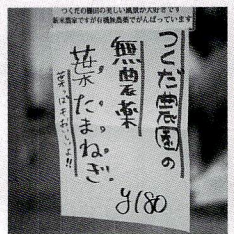 つくだの棚田の美しい風景が大好きです
新米農家ですが有機無農薬でがんばっています
つくだ農園の
無農薬
葉たまねぎ
葉っぱもおいしいよ!!
¥180